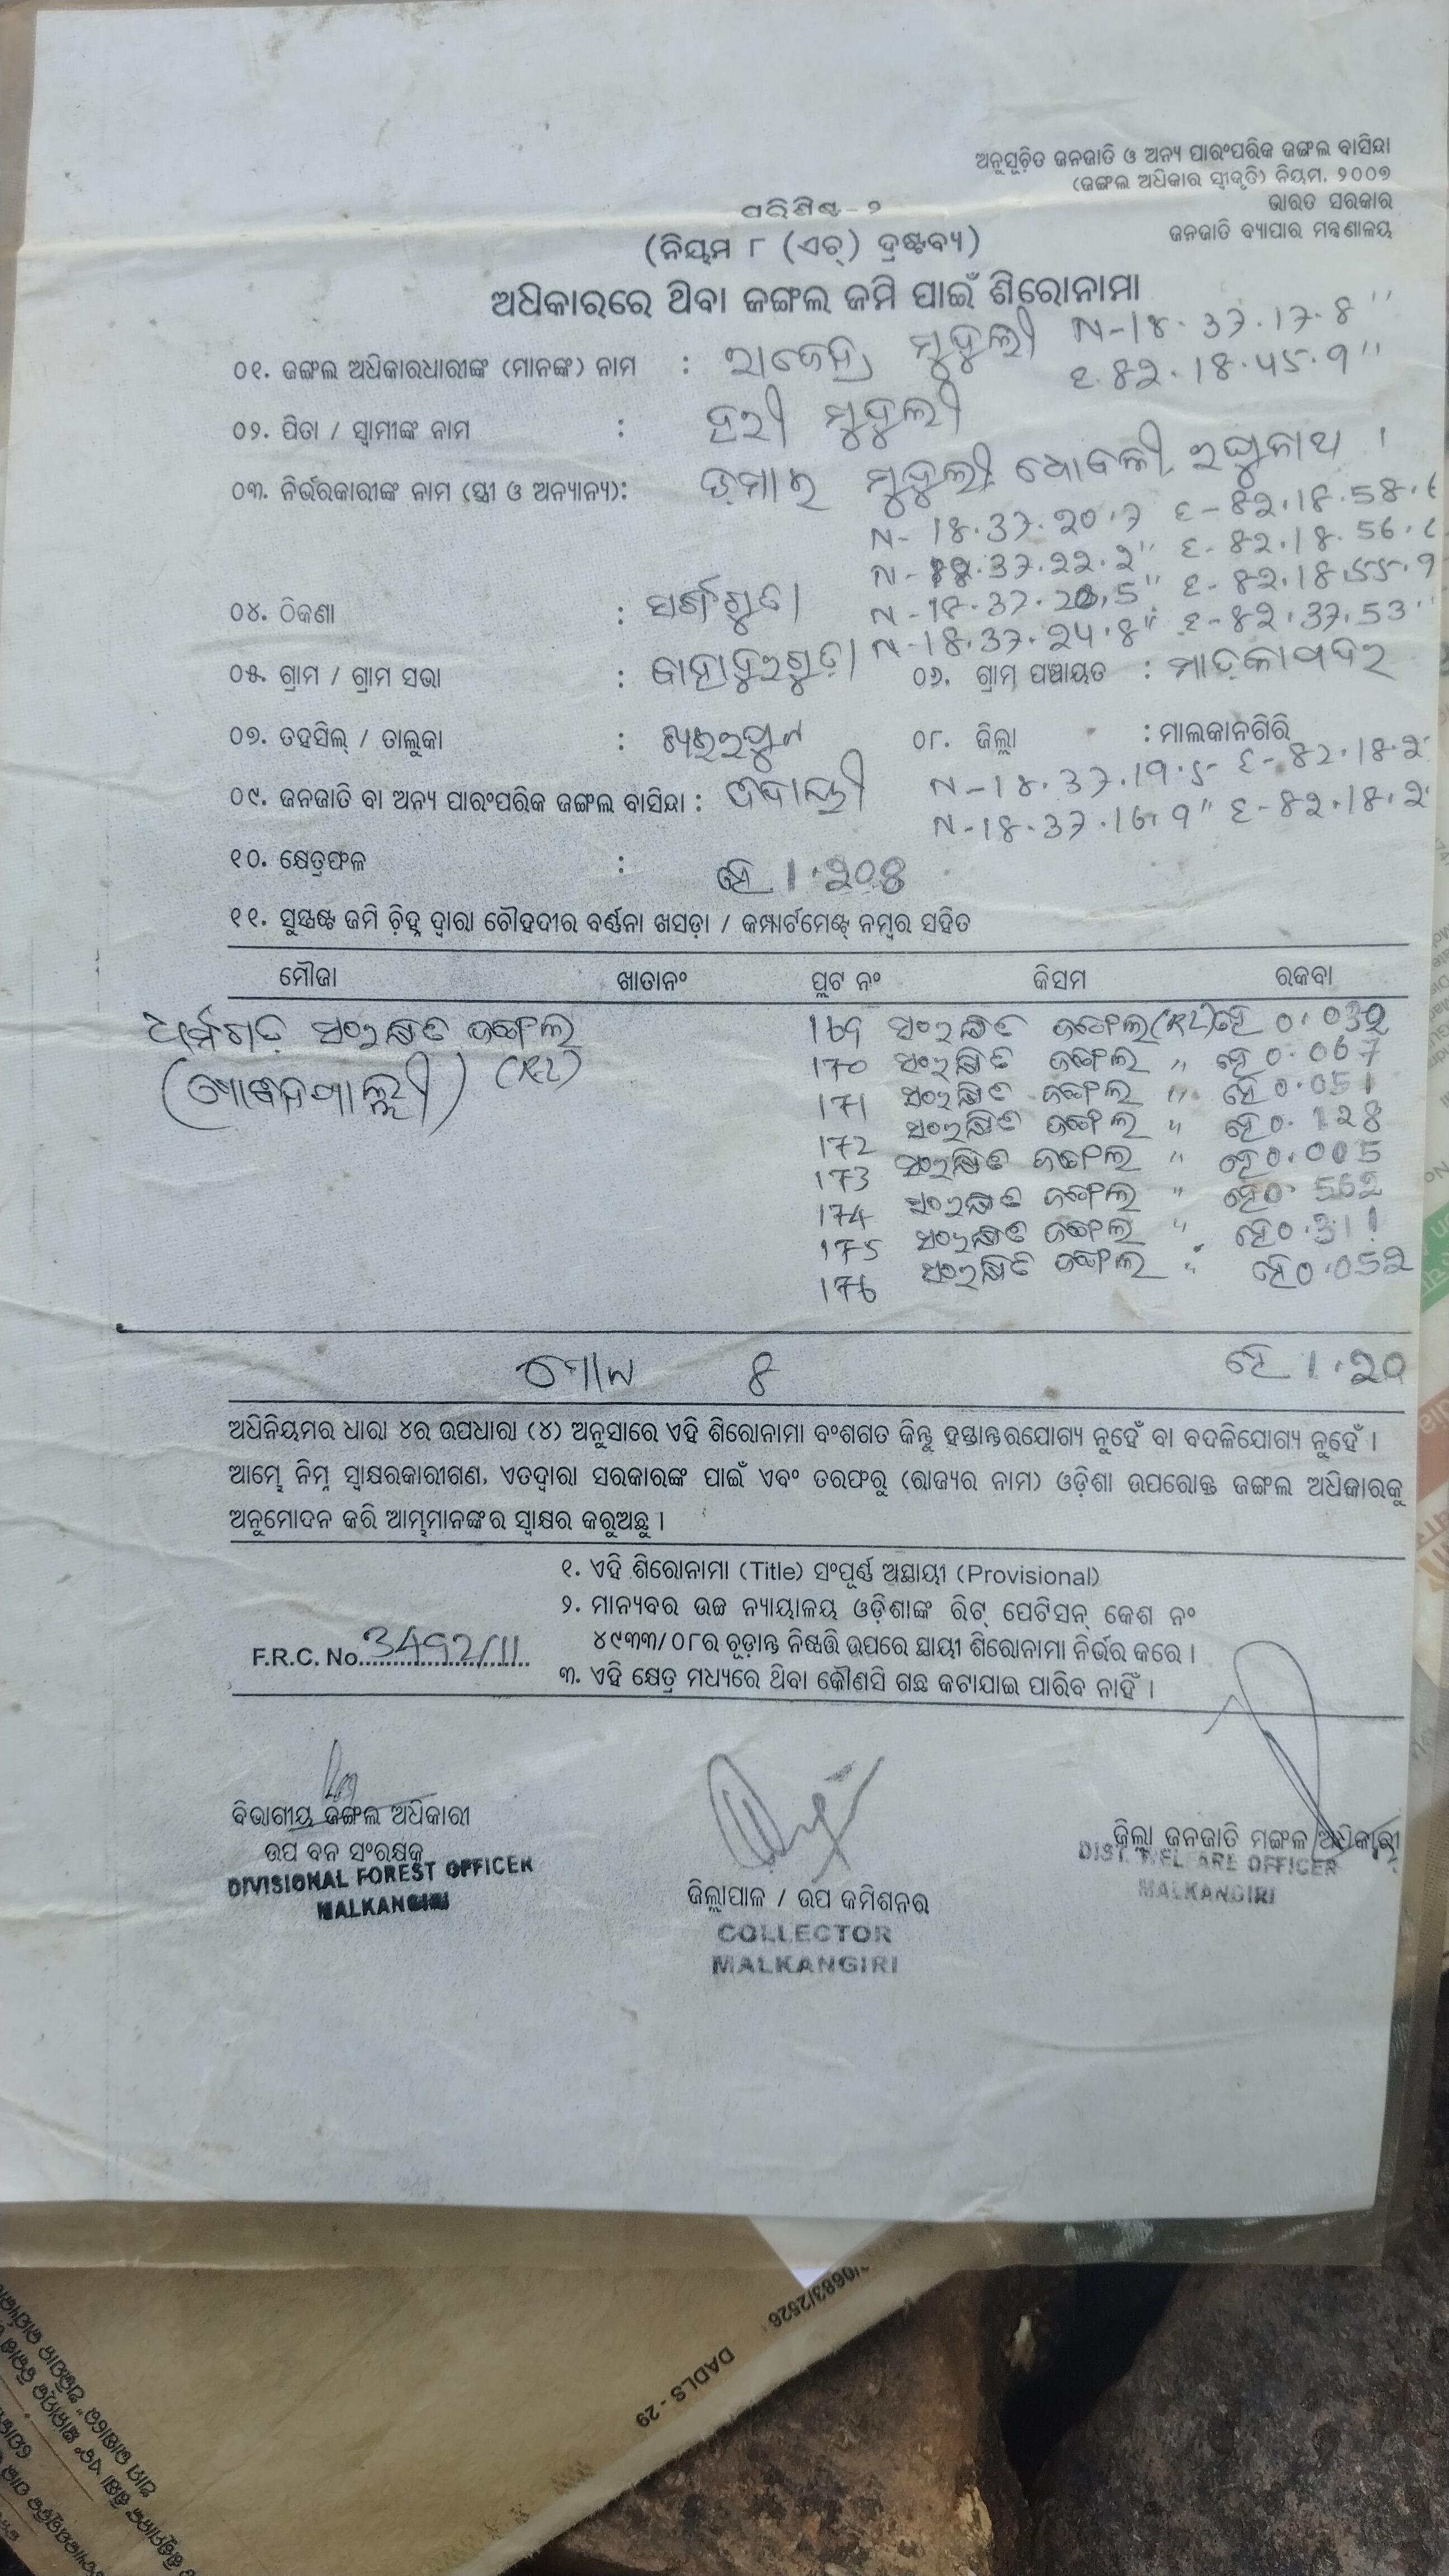 ଅନୁସୂଚିତ ଜନଜାତି ଓ ଅନ୍ୟ ପାରଂପରିକ ଜଙ୍ଗଲ ବାସିନ୍ଦା
(ଜଙ୍ଗଲ ଅଧିକାର ସ୍ୱୀକୃତି) ନିୟମ, ୨୦୦୭
ଭାରତ ସରକାର
ଜନଜାତି ବ୍ୟାପାର ମନ୍ତ୍ରଣାଳୟ
ପରିଶିଷ୍ଟ - ୨
(ନିୟମ ୮ (ଏଚ୍) ଦ୍ରଷ୍ଟବ୍ୟ)
ଅଧିକାରରେ ଥିବା ଜଙ୍ଗଲ ଜମି ପାଇଁ ଶିରୋନାମା
N-18.37.17.8"
୦୧. ଜଙ୍ଗଲ ଅଧିକାରଧାରୀଙ୍କ (ମାନଙ୍କ) ନାମ : ରାଜେନ୍ଦ୍ର ମୁଦୁଲୀ E.82.18.45.9"
୦୨. ପିତା / ସ୍ୱାମୀଙ୍କ ନାମ : ହରୀ ମୁଦୁଲୀ
୦୩. ନିର୍ଭରକାରୀଙ୍କ ନାମ (ସ୍ତ୍ରୀ ଓ ଅନ୍ୟାନ୍ୟ): ମୁଦୁଲୀ, ରଘୁନାଥ ।
N- 18.37.20.7 E-82.18.58.
N- 37.22.2" E- 82.18.56.
N-18.37. E- 82.18.55.9
୦୪. ଠିକଣା :
N-18.37.24.8" E-82.37.53"
୦୫. ଗ୍ରାମ / ଗ୍ରାମ ସଭା : ବାହାଦୁରଗୁଡ଼ା ୦୬. ଗ୍ରାମ ପଞ୍ଚାୟତ : ମାଡ଼କାପଦର
୦୭. ତହସିଲ୍ / ତାଲୁକା : ୦୮. ଜିଲ୍ଲା : ମାଲକାନଗିରି
N-18.37.19.5 E-82.18.2
୦୯. ଜନଜାତି ବା ଅନ୍ୟ ପାରଂପରିକ ଜଙ୍ଗଲ ବାସିନ୍ଦା :
N-18.37.16.9" E-82.18.2
୧୦. କ୍ଷେତ୍ରଫଳ : ହେ 1.208
୧୧. ସୁସ୍ପଷ୍ଟ ଜମି ଚିହ୍ନ ଦ୍ୱାରା ଚୌହଦୀର ବର୍ଣ୍ଣନା ଖସଡ଼ା / କମ୍ପାର୍ଟମେଣ୍ଟ୍ ନମ୍ବର ସହିତ
ମୌଜା ଖାତାନଂ ପ୍ଲଟ ନଂ କିସମ ରକବା
ଧର୍ମଗଡ଼ ସଂରକ୍ଷିତ ଜଙ୍ଗଲ 169 ସଂରକ୍ଷିତ ଜଙ୍ଗଲ ହେ 0.032
170 ସଂରକ୍ଷିତ ଜଙ୍ଗଲ " ହେ 0.067
171 ସଂରକ୍ଷିତ ଜଙ୍ଗଲ " ହେ 0.051
172 ସଂରକ୍ଷିତ ଜଙ୍ଗଲ " ହେ 0.128
173 ସଂରକ୍ଷିତ ଜଙ୍ଗଲ " ହେ 0.005
174 ସଂରକ୍ଷିତ ଜଙ୍ଗଲ " ହେ 0.562
175 ସଂରକ୍ଷିତ ଜଙ୍ଗଲ " ହେ 0.311
176 ସଂରକ୍ଷିତ ଜଙ୍ଗଲ " ହେ 0.052
8 ହେ 1.20
ଅଧିନିୟମର ଧାରା ୪ର ଉପଧାରା (୪) ଅନୁସାରେ ଏହି ଶିରୋନାମା ବଂଶଗତ କିନ୍ତୁ ହସ୍ତାନ୍ତରଯୋଗ୍ୟ ନୁହେଁ ବା ବଦଳିଯୋଗ୍ୟ ନୁହେଁ ।
ଆମ୍ଭେ ନିମ୍ନ ସ୍ୱାକ୍ଷରକାରୀଗଣ, ଏତଦ୍ୱାରା ସରକାରଙ୍କ ପାଇଁ ଏବଂ ତରଫରୁ (ରାଜ୍ୟର ନାମ) ଓଡ଼ିଶା ଉପରୋକ୍ତ ଜଙ୍ଗଲ ଅଧିକାରକୁ
ଅନୁମୋଦନ କରି ଆମ୍ଭମାନଙ୍କର ସ୍ୱାକ୍ଷର କରୁଅଛୁ ।
୧. ଏହି ଶିରୋନାମା (Title) ସଂପୂର୍ଣ୍ଣ ଅସ୍ଥାୟୀ (Provisional)
୨. ମାନ୍ୟବର ଉଚ୍ଚ ନ୍ୟାୟାଳୟ ଓଡ଼ିଶାଙ୍କ ରିଟ୍ ପେଟିସନ୍ କେଶ ନଂ
୪୯୩୩/୦୮ର ଚୂଡ଼ାନ୍ତ ନିଷ୍ପତ୍ତି ଉପରେ ସ୍ଥାୟୀ ଶିରୋନାମା ନିର୍ଭର କରେ ।
F.R.C. No. 3492/11
୩. ଏହି କ୍ଷେତ୍ର ମଧ୍ୟରେ ଥିବା କୌଣସି ଗଛ କଟାଯାଇ ପାରିବ ନାହିଁ ।
ବିଭାଗୀୟ ଜଙ୍ଗଲ ଅଧିକାରୀ
ଉପ ବନ ସଂରକ୍ଷକ
DIVISIONAL FOREST OFFICER
MALKANGIRI
ଜିଲ୍ଲାପାଳ / ଉପ କମିଶନର
COLLECTOR
MALKANGIRI
ଜିଲ୍ଲା ଜନଜାତି ମଙ୍ଗଳ ଅଧିକାରୀ
DIST. WELFARE OFFICER
MALKANGIRI
/0683/2526
DADLS - 29